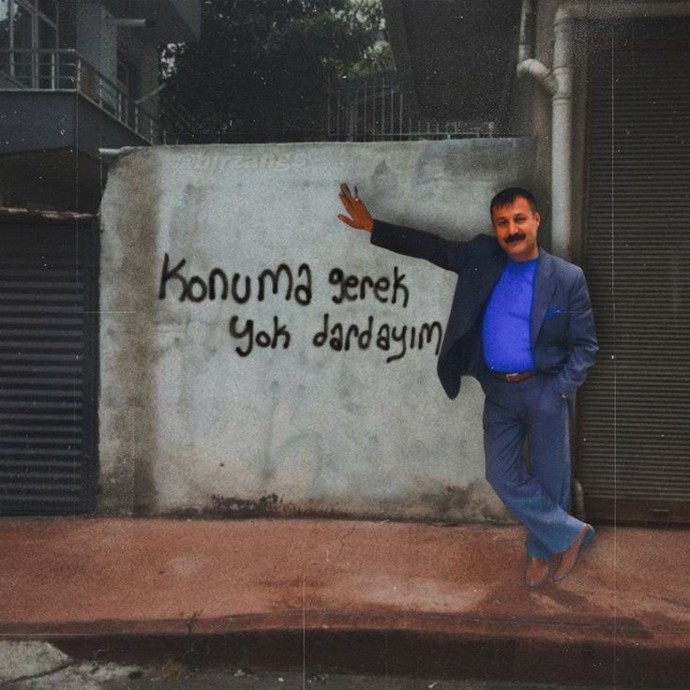 Konuma gerek
yok dardayım